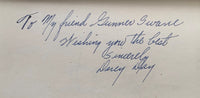 To My friend Gunner Swane
Wishing you the best
Sincerely
Darcy Dacy